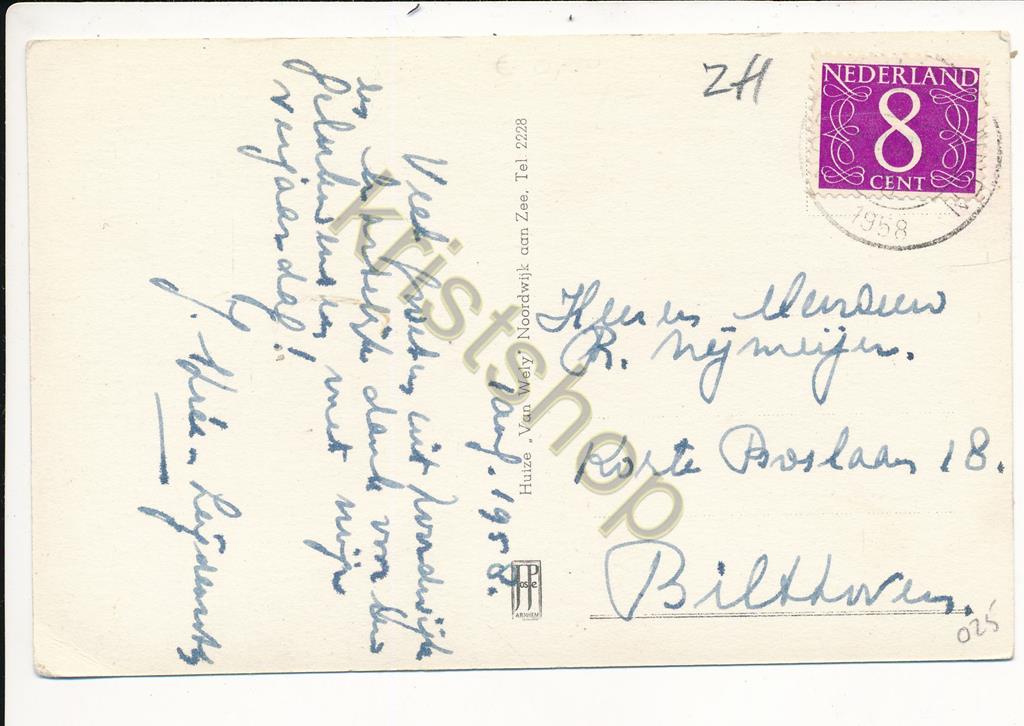 ZH
NEDERLAND
8
CENT
1958
Heer en Mevrouw
R. Nijmeijer.
Korte Boslaan 18.
Bilthoven.
025
Huize „Van Wely" Noordwijk aan Zee, Tel 2228
JosPé
ARNHEM
1 aug. 1958.
Veel groeten uit Noordwijk
en hartelijk dank voor Uw
felicitaties met mijn
verjaardag!
kristshop